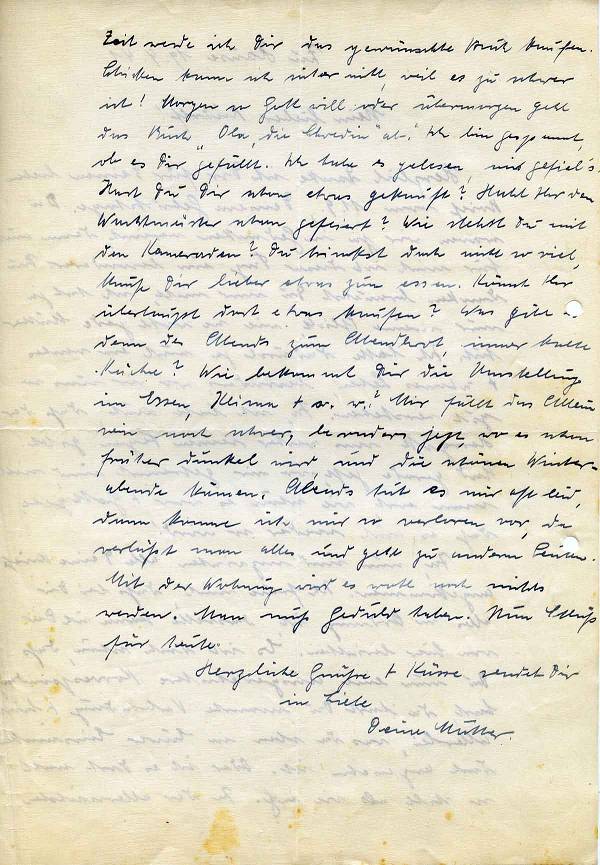 Zeit werde ich Dir das gewünschte Buch kaufen.
Schicken kann ich ihn nicht, weil es zu schwer
ist! Morgen so Gott will oder übermorgen geht
das Buch "Ola, die Chredin" ab. Ich bin gespannt,
ob es Dir gefällt. Ich habe es gelesen, mir gefiel's.
Hast Du Dir schon etwas gekauft? Habt Ihr den
Wachtmeister schon gefeiert? Wie stehst Du mit
den Kameraden? Du trinkst doch nicht so viel,
kaufe Dir lieber etwas zum essen. Könnt Ihr
überhaupt dort etwas kaufen? Was gibt es
denn des Abends zum Abendbrot, immer kalte
Küche? Wie bekommt Dir die Umstellung
im Essen, Klima + s. w.? Mir fällt das Allein
sein noch schwer, besonders jetzt, wo es schon
früher dunkel wird, und die schönen Winter-
abende kommen. Abends tut es mir oft leid,
dann komme ich mir so verloren vor, da
verläßt man alles und geht zu andern Leuten.
Mit der Wohnung wird es wohl noch nichts
werden. Man muß Geduld haben. Nun Schluß
für heute.
Herzliche Grüße + Küsse sendet Dir
in Liebe
Deine Mutter.